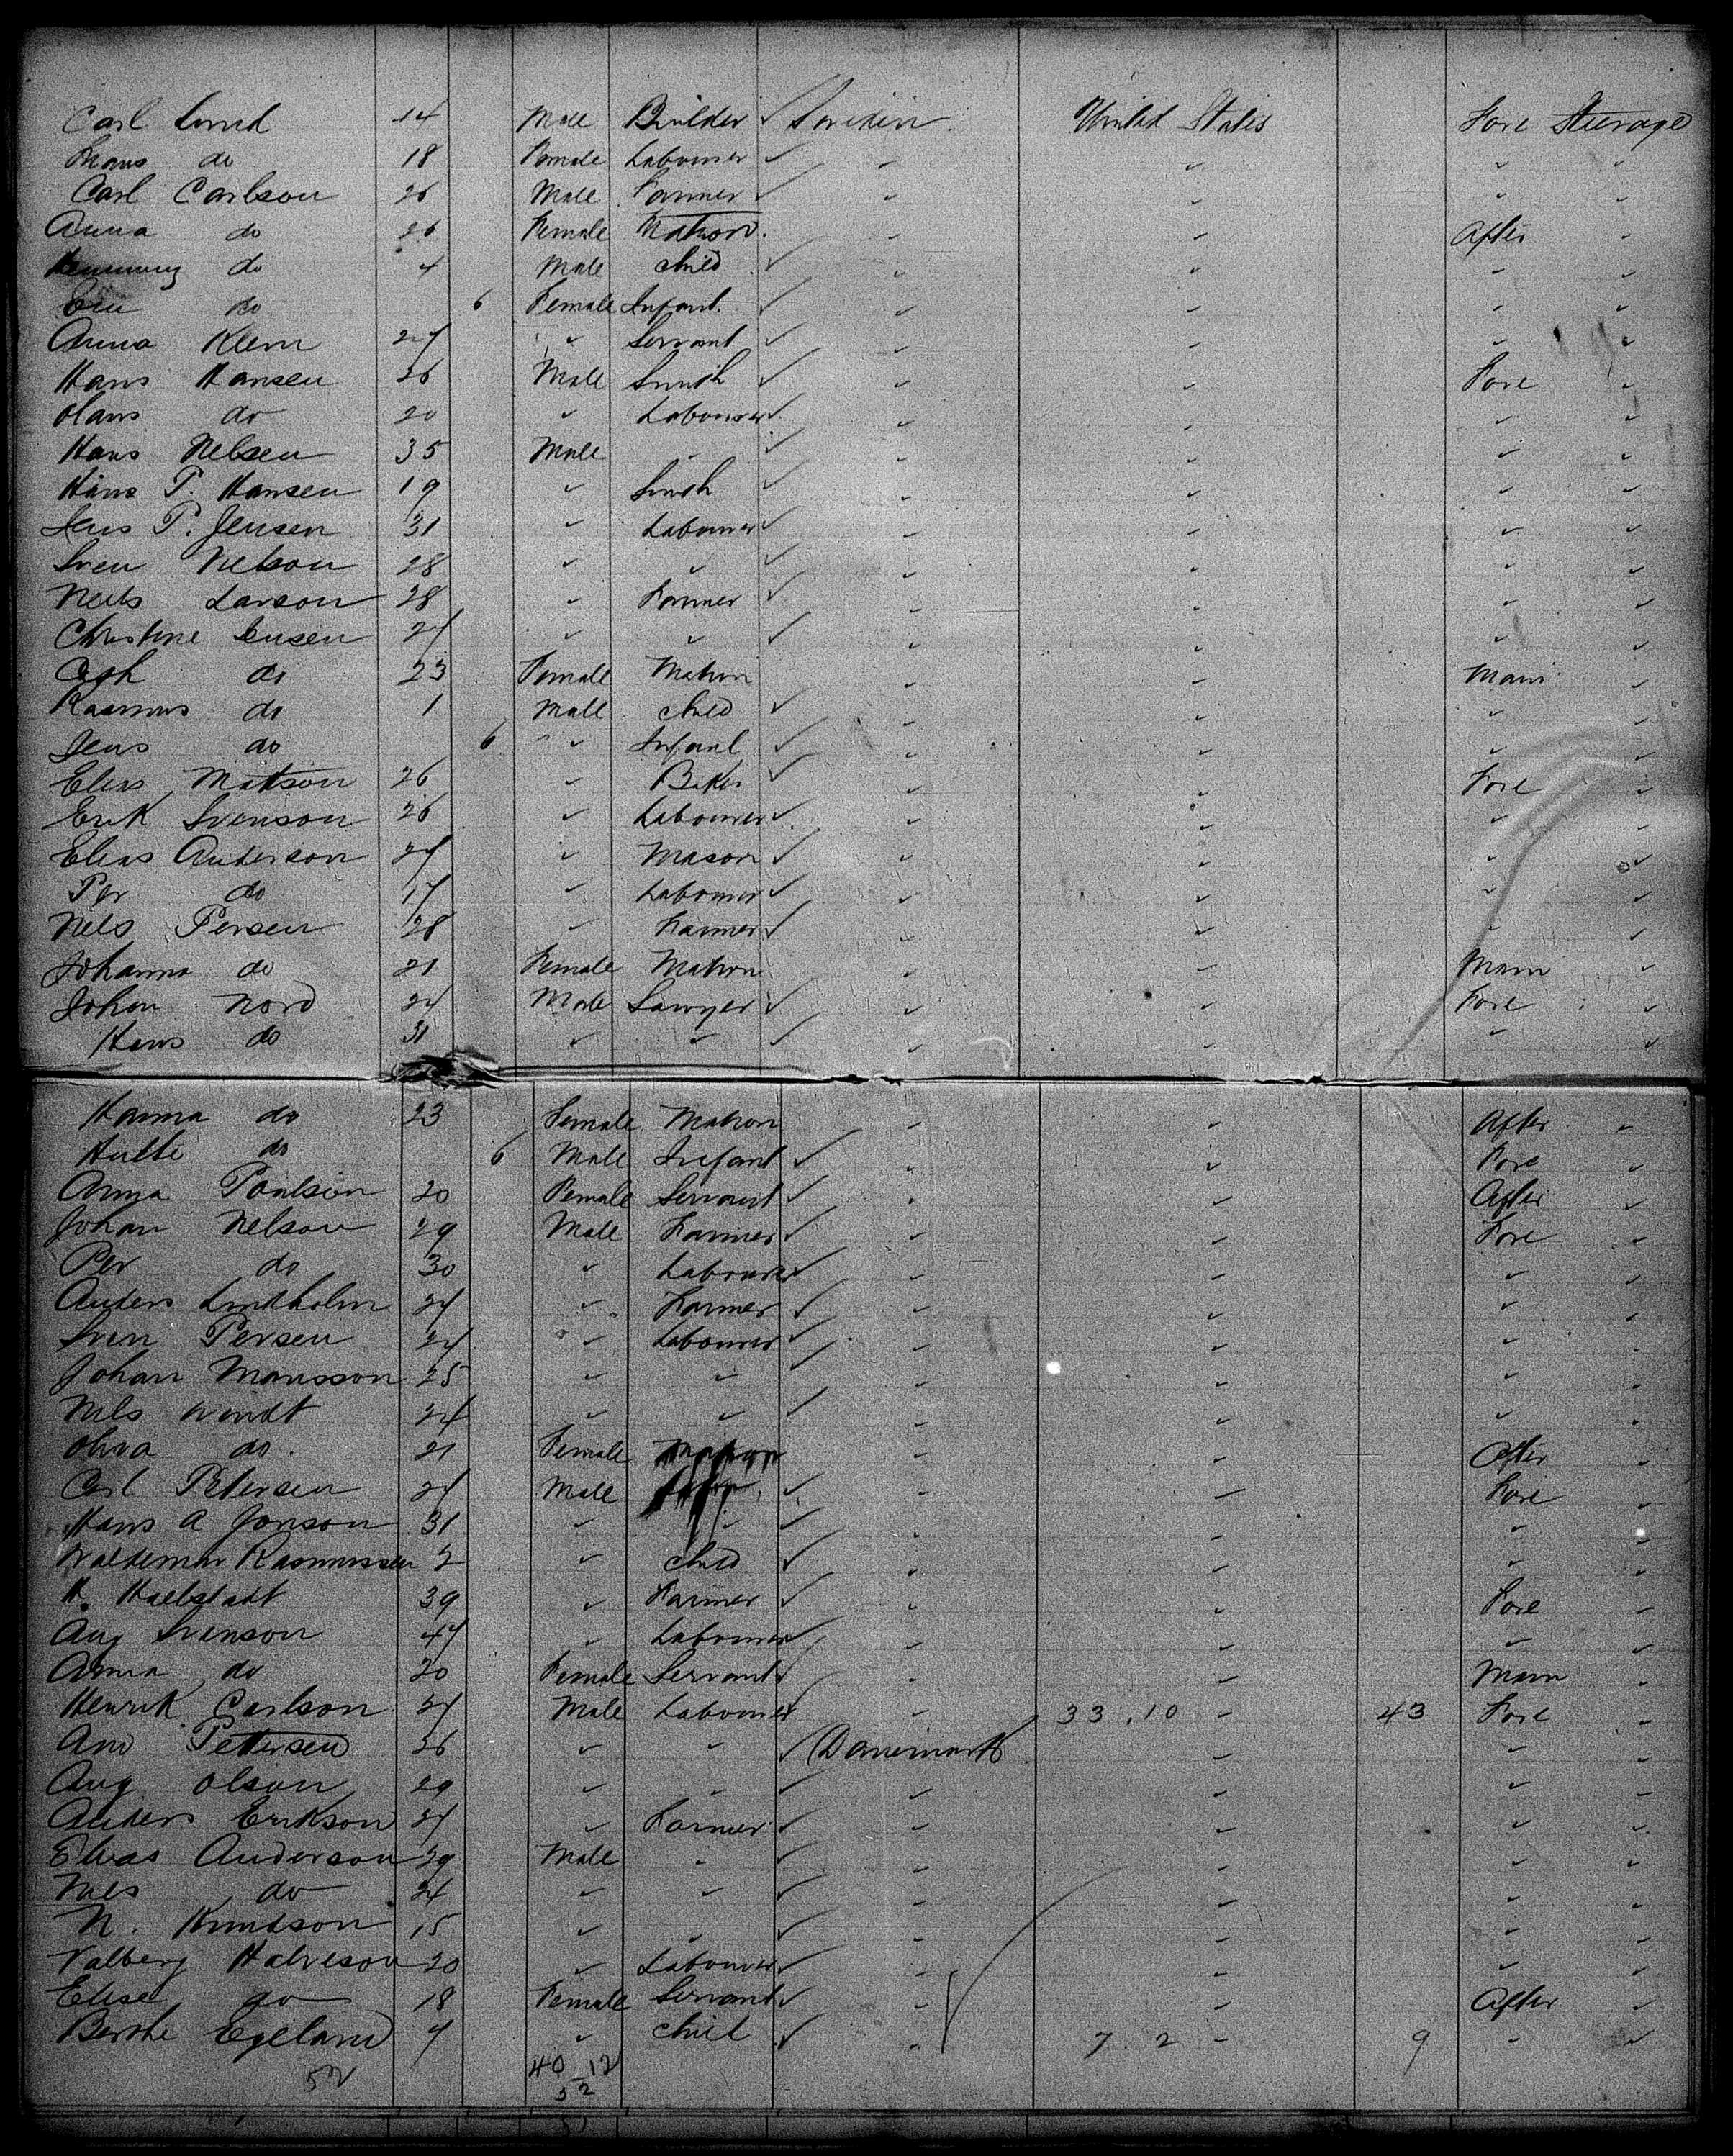 Carl Lund 14 Male Builder ✓ Sweden United States Fore Steerage
Hans do 18 Female Labourer ✓ " " " "
Carl Carlson 26 Male Farmer ✓ " " " "
Anna do 26 Female Matron " " After "
Henning do 4 Male Child ✓ " " " "
do 6 Female Infant ✓ " " " "
Anna Klem 24 " Servant ✓ " " " "
Hans Hansen 26 Male Smith ✓ " " Fore "
Hans do 20 " Labourer ✓ " " " "
Hans Nelsen 35 Male " ✓ " " " "
Hans P. Hansen 19 " Smith ✓ " " " "
Jens P. Jensen 31 " Labourer ✓ " " " "
Sven Nelson 28 " " ✓ " " " "
Neils Larson 28 " Farmer ✓ " " " "
Christine Jensen 24 " " ✓ " " " "
do 23 Female Matron " " Main "
Rasmus do 1 Male Child ✓ " " " "
Jens do 6 " Infant ✓ " " " "
Elias Matson 26 " Baker ✓ " " Fore "
Erik Svenson 26 " Labourer ✓ " " " "
Elias Anderson 24 " Mason ✓ " " " "
Per do 17 " Labourer ✓ " " " "
Nels Persen 28 " Farmer ✓ " " " "
Johanna do 21 Female Matron " " Main "
Johan Nord 24 Male Sawyer ✓ " " Fore "
Hans do 31 " " ✓ " " " "
Hanna do 23 Female Matron " " After "
do 6 Male Infant ✓ " " Fore "
Anna Paulson 20 Female Servant ✓ " " After "
Johan Nelson 29 Male Farmer ✓ " " Fore "
Per do 30 " Labourer ✓ " " " "
Anders Lindholm 24 " Farmer ✓ " " " "
Sven Persen 24 " Labourer ✓ " " " "
Johan Mansson 25 " " ✓ " " " "
Nils Windt 24 " " ✓ " " " "
do 21 Female Matron " " After "
Carl Petersen 24 Male ✓ " " Fore "
Hans A Jonson 31 " " ✓ " " " "
Waldemar Rasmussen 2 " Child ✓ " " " "
H. Hallstadt 39 " Farmer ✓ " " Fore "
Aug Svenson 47 " Labourer ✓ " " " "
Anna do 20 Female Servant ✓ " " Main "
Henrik Carlson 24 Male Labourer " 33.10 " 43 Fore "
And Petersen 26 " " ✓ Dannemark " " "
Aug Olson 29 " " ✓ " " " "
Anders Erikson 24 " Farmer ✓ " " " "
Elias Anderson 29 Male " ✓ " " " "
Nels do 24 " " ✓ " " " "
N. Knudson 15 " " ✓ " " " "
Valberg Halveson 20 " Labourer ✓ " " " "
Elise do 18 Female Servant ✓ " " After "
Berthe Egeland 7 " Child ✓ " 7 2 " 9 " "
52 40 12
52